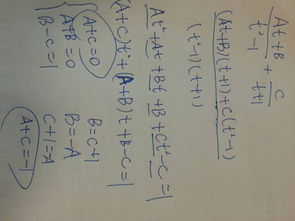 At+B / t²-1 + C / t+1
(At+B)(t+1)+C(t²-1)
(t²-1)(t+1)
At²+At+Bt+B+Ct²-C=1
(A+C)t²+(A+B)t+B-C=1
A+C=0
A+B=0
B-C=1
B=C+1
B=-A
C+1=-A
A+C=-1